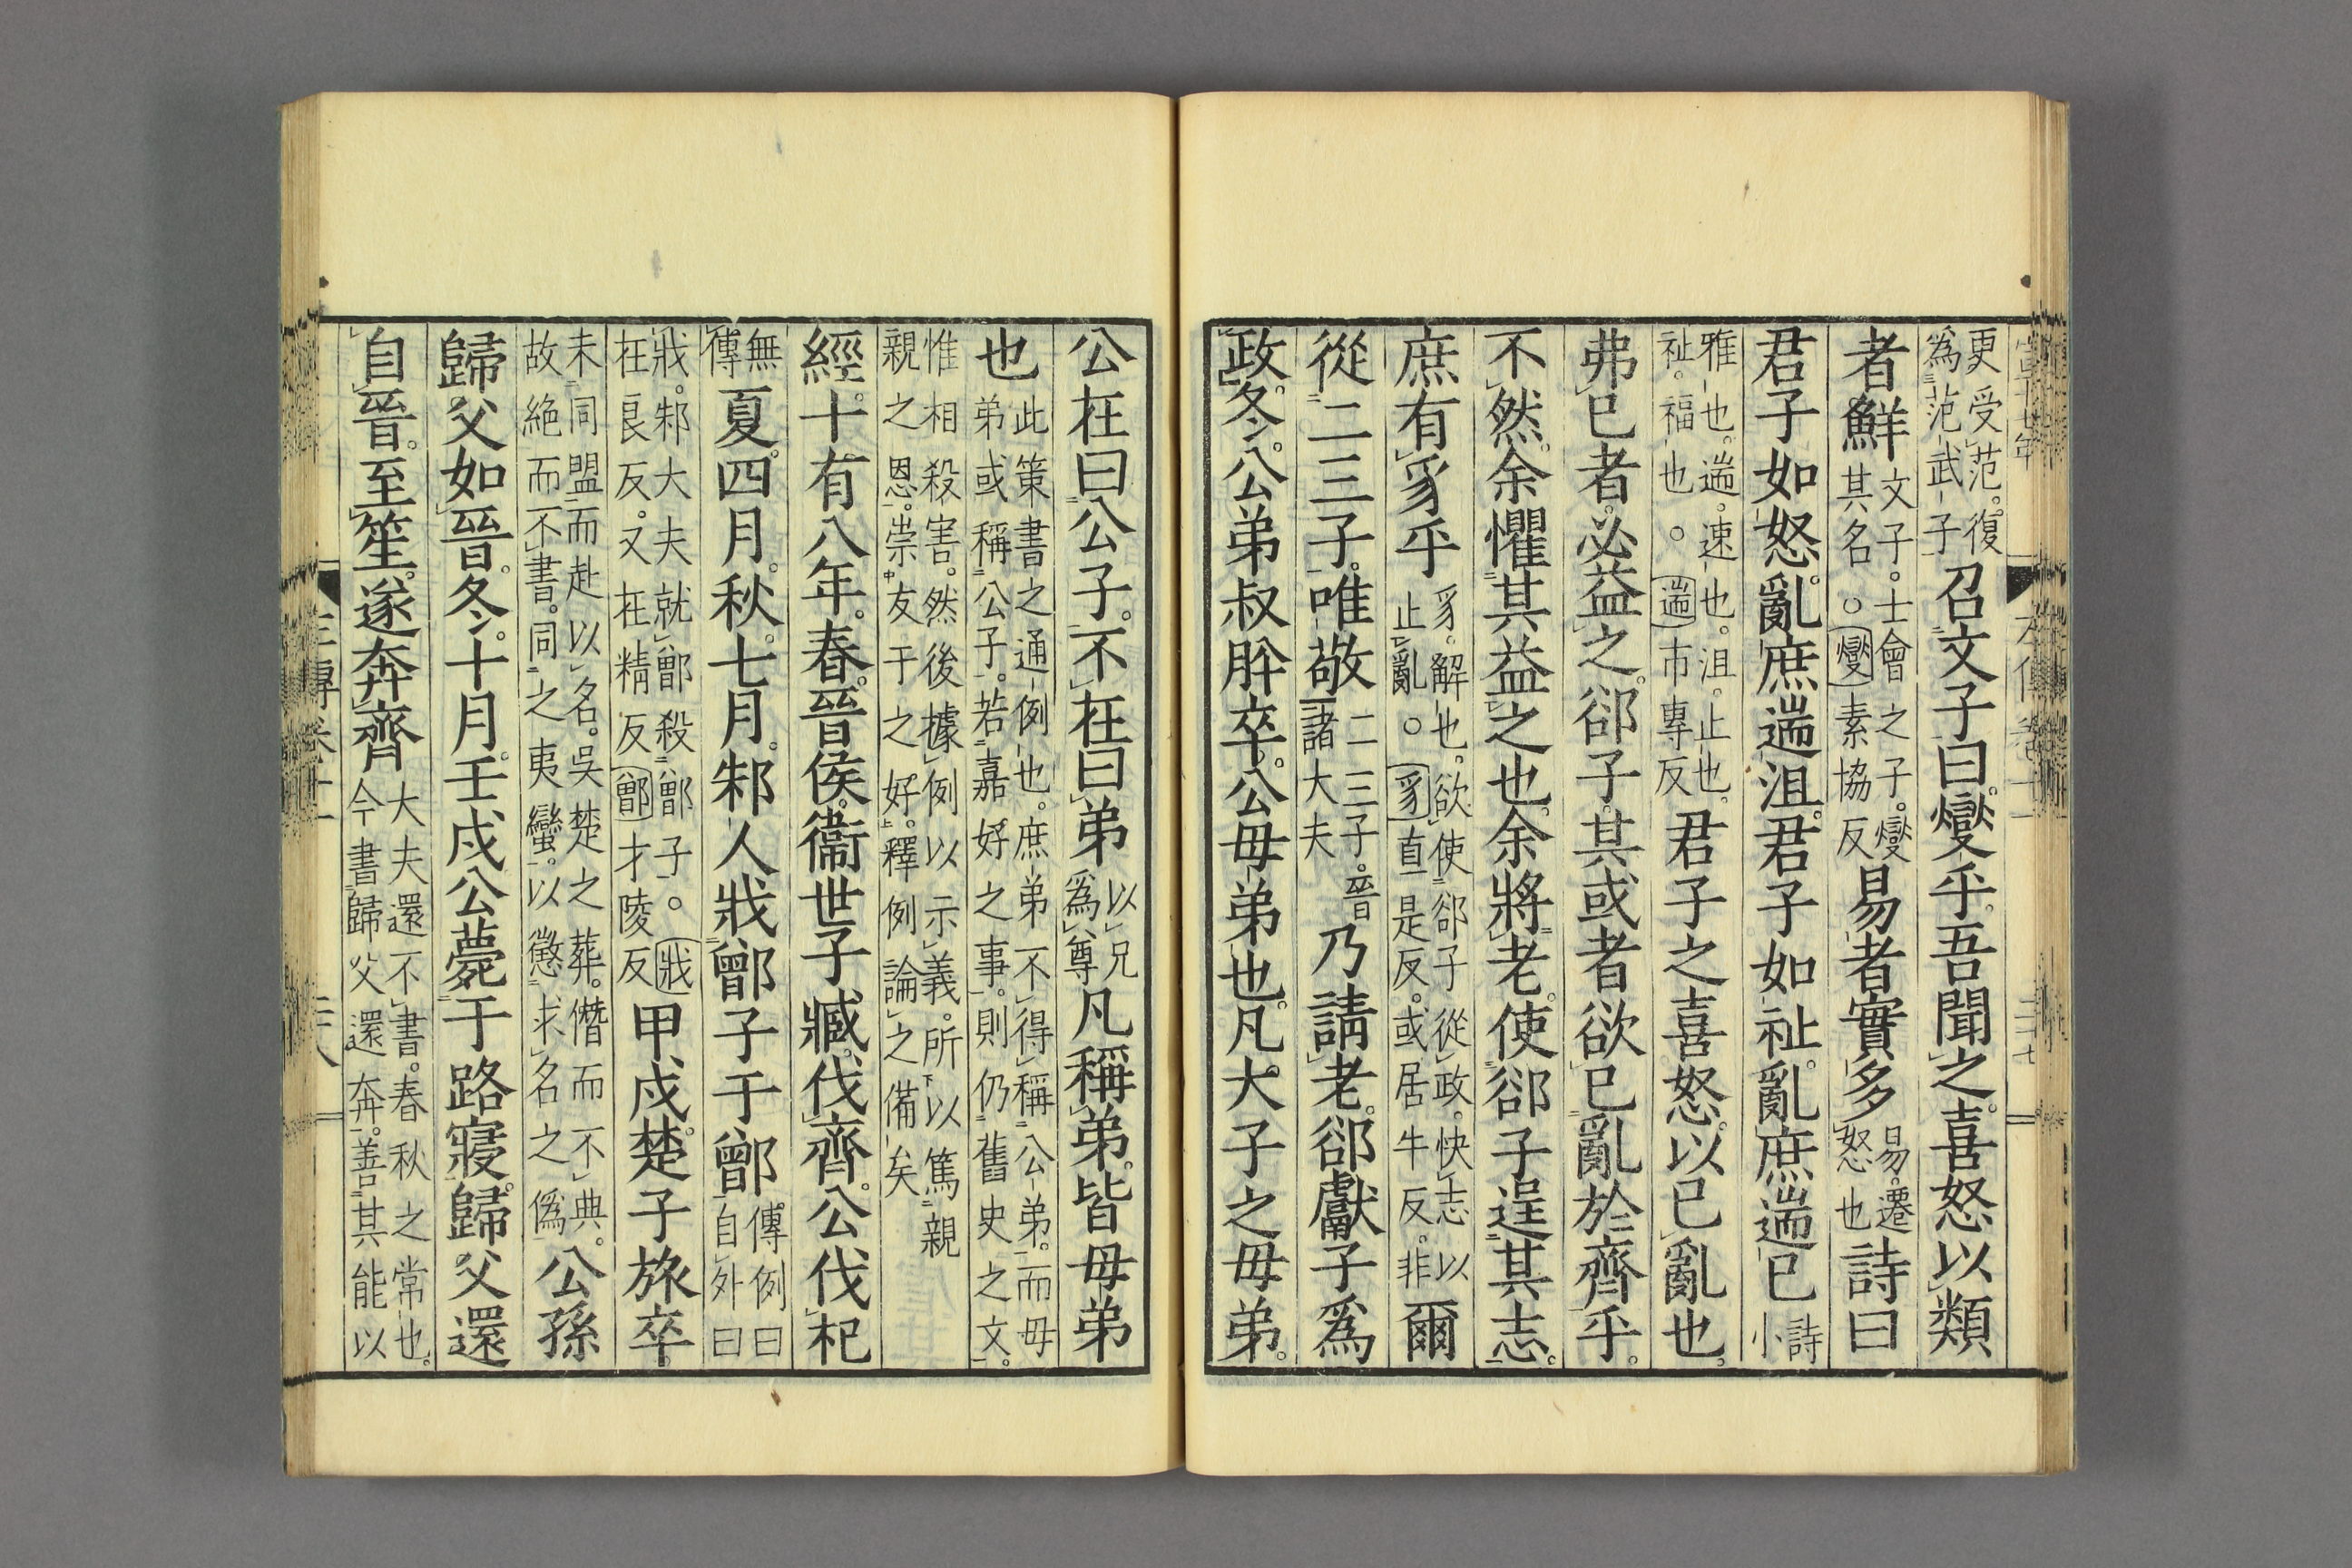 更受范。復爲范武子召文子曰。燮乎。吾聞之。喜怒以類
者鮮文子。士會之子。燮其名。○燮素協反易者實多易。遷怒也詩曰
君子如怒。亂庶遄沮。君子如祉。亂庶遄已詩小
雅也。遄。速也。沮。止也。祉。福也。○遄市專反君子之喜怒。以已亂也。
弗已者。必益之。郤子其或者欲已亂於齊乎。
不然。余懼其益之也。余將老。使郤子逞其志。
庶有豸乎豸。解也。欲使郤子從政。快志以止亂。○豸直是反。或居牛反。非爾
從二三子。唯敬二三子。晉諸大夫乃請老。郤獻子爲
政。冬。公弟叔肸卒。公母弟也。凡大子之母弟。
公在曰公子。不在曰弟以兄爲尊凡稱弟。皆母弟
也此策書之通例也。庶弟不得稱公弟。而母弟或稱公子。若嘉好之事。則仍舊史之文。
惟相殺害。然後據例以示義。所以篤親親之恩。崇友于之好。釋例論之備矣
經。十有八年。春。晉侯。衞世子臧。伐齊。公伐杞
無傳夏。四月。秋。七月。邾人戕鄫子于鄫。傳例曰自外曰
戕。邾大夫就鄫殺鄫子。○戕在良反。又在精反鄫才陵反甲戌。楚子旅卒。
未同盟而赴以名。吳楚之葬。僭而不典。故絕而不書。同之夷蠻。以懲求名之僞公孫
歸父如晉。冬。十月。壬戌。公薨于路寢。歸父還
自晉。至笙。遂奔齊大夫還不書。春秋之常也。今書歸父還奔。善其能以